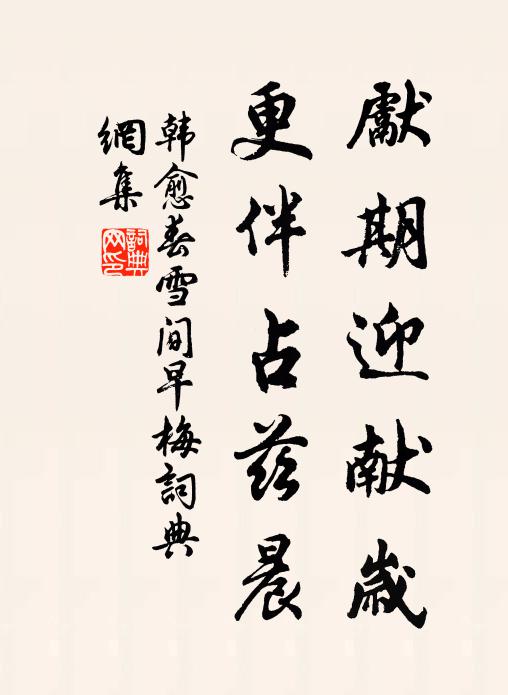 獻期迎献歲
更伴占茲晨
韩愈春雪间早梅詞典
網集
詞典
网印